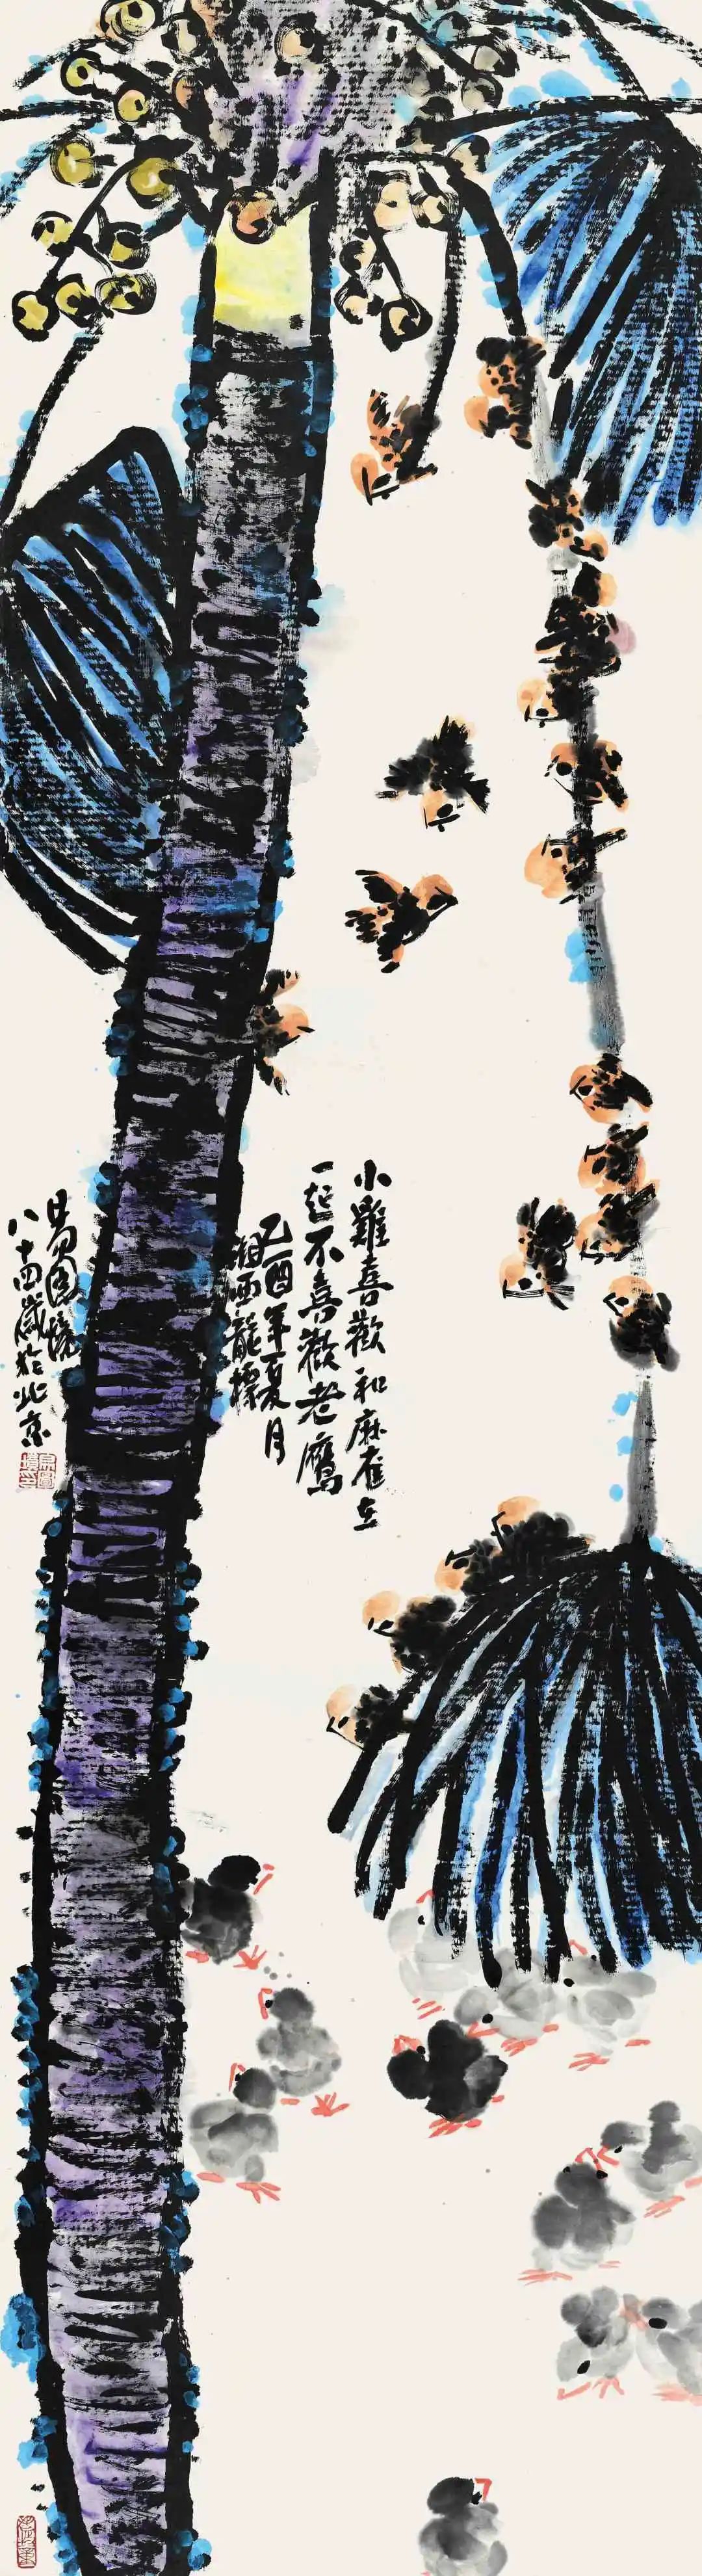 小雞喜歡和麻雀在
一起不喜歡老鷹
乙酉年夏月
湘西龍標
易图境
八十四歲於北京